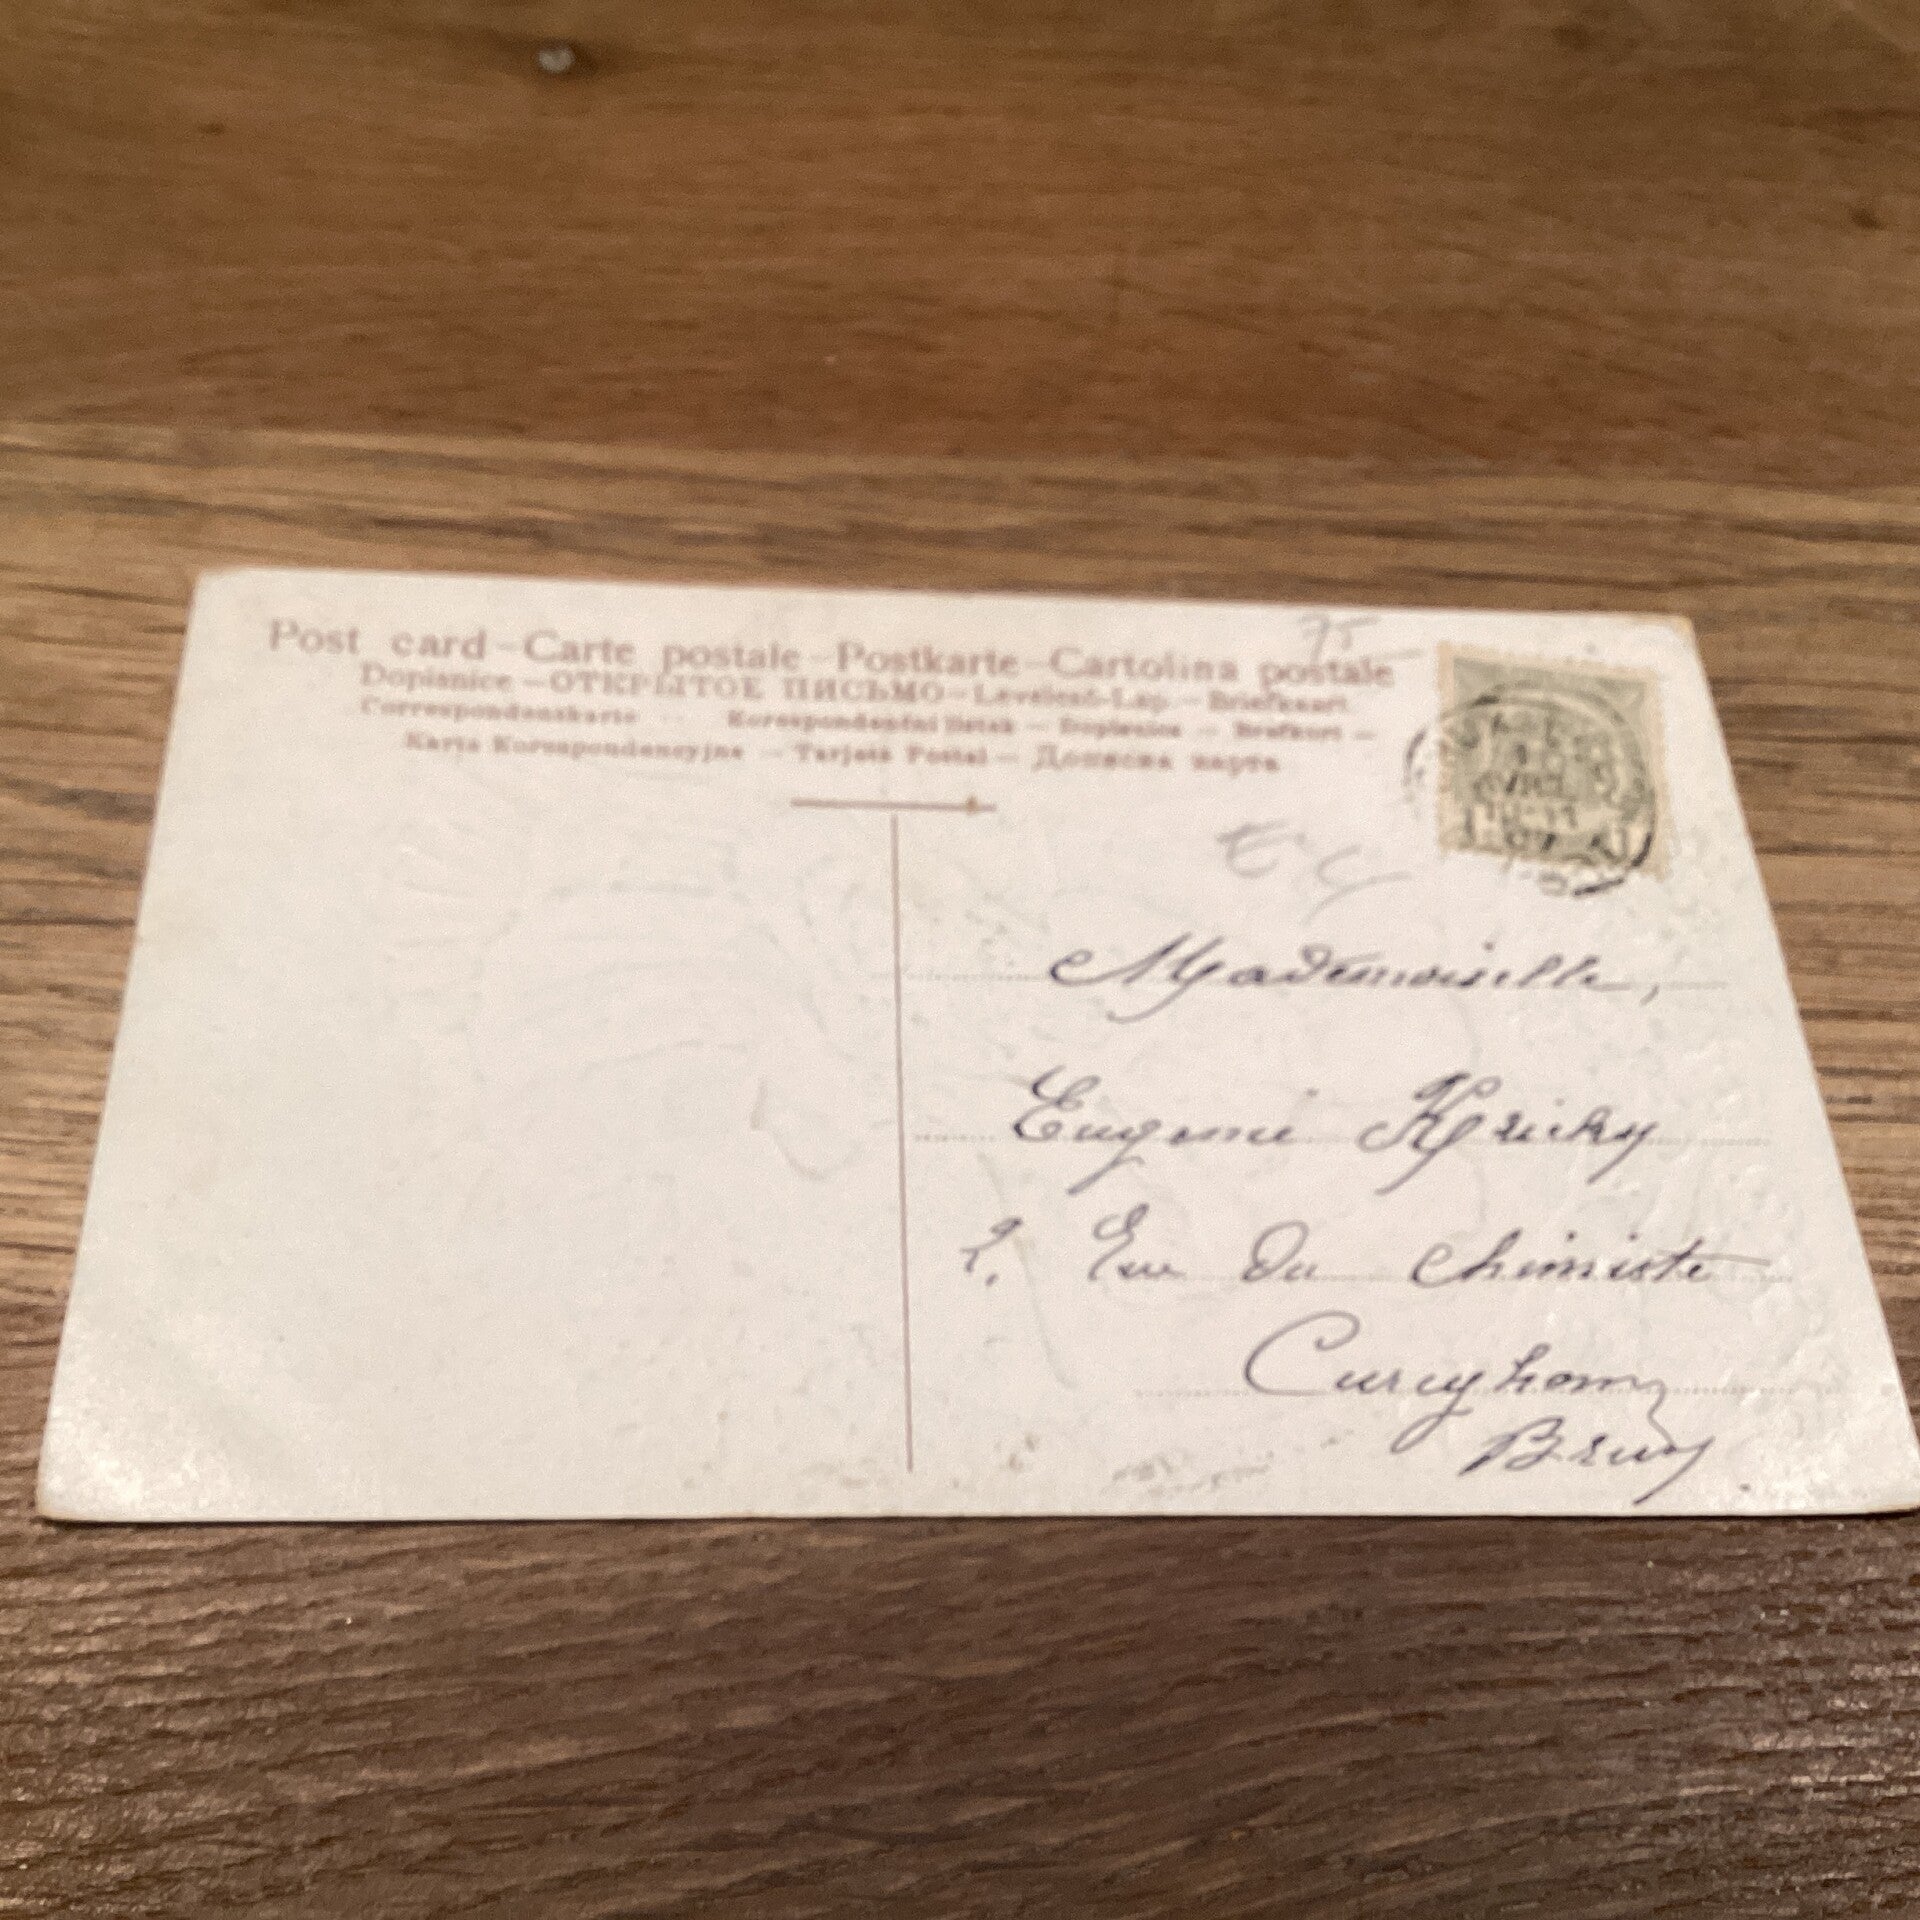 Post card – Carte postale – Postkarte – Cartolina postale
Dopisnice – ОТКРЫТОЕ ПИСЬМО – Levelező-Lap. – Briefkaart
Correspondenskarte – Korespondenční lístek – Dopisnica – Brefkort –
Karta Korespondencyjna – Tarjeta Postal – Дописна карта
75
AVRIL
07
Mademoiselle,
Eugenie
2, Rue du Chimiste
Cureghem
Brux